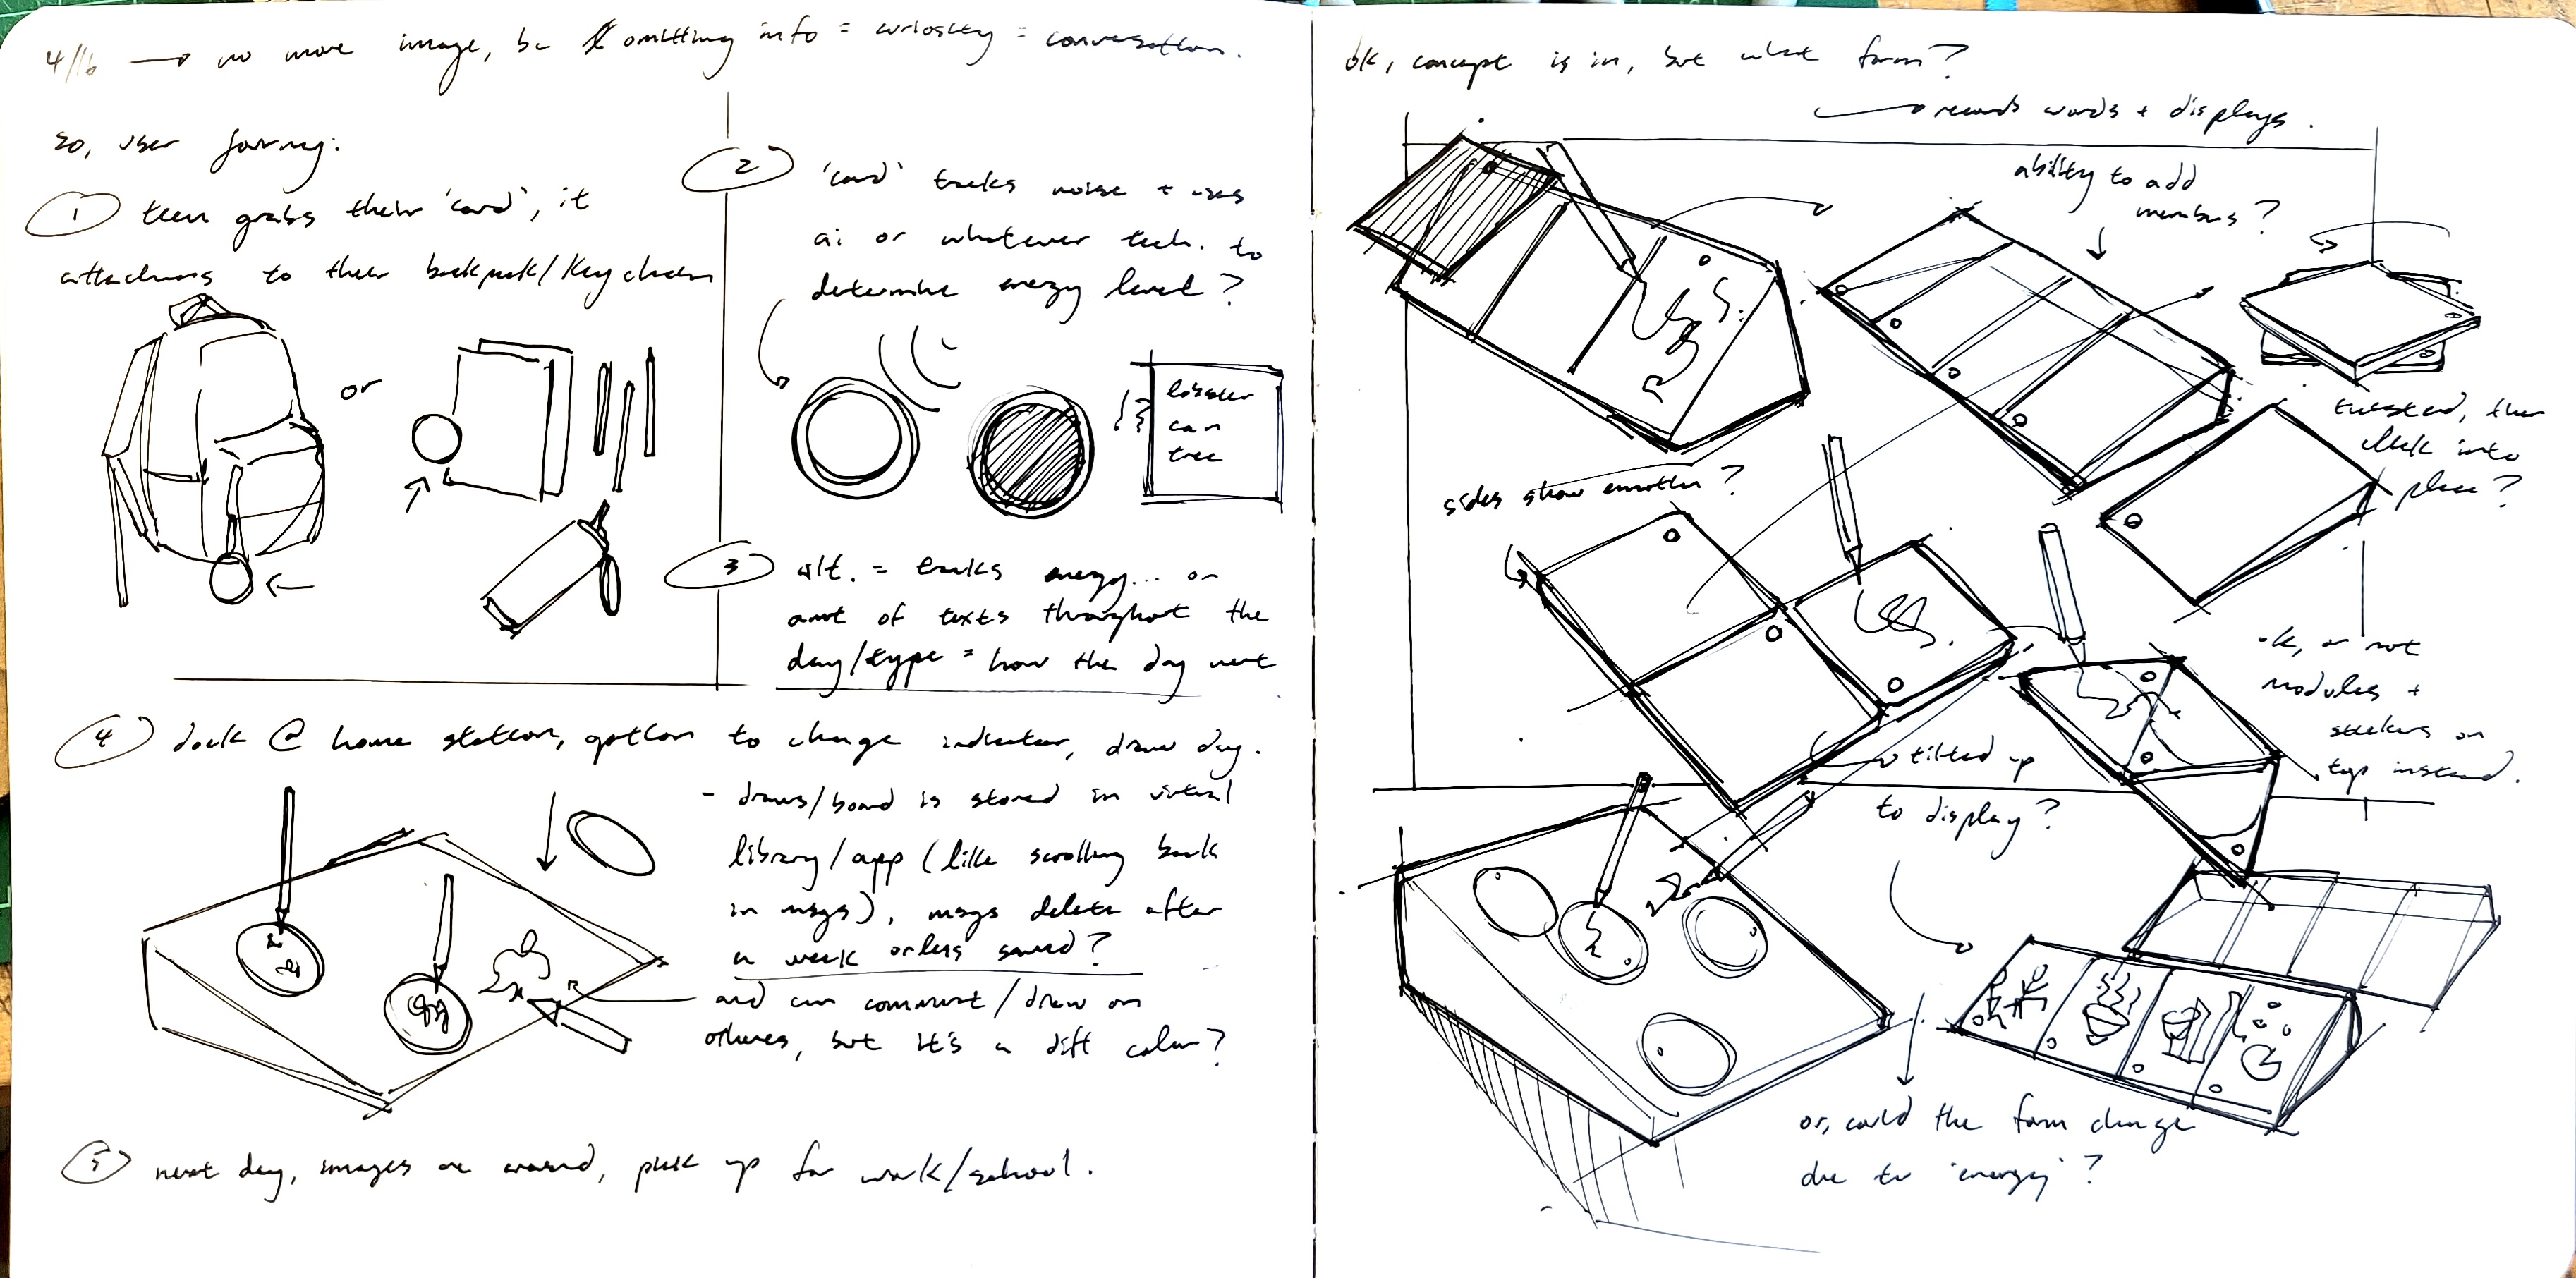 4/16 → no more image, bc omitting info = curiosity = conversation.
so, user journey:
1 teen grabs their 'card', it
attaches to their backpack/keychain
or
2 'card' tracks noise + uses
ai or whatever tech. to
determine energy level?
lobster
can
tree
3 alt. = tracks energy... or
amt of texts throughout the
day/type = how the day went
4 dock @ home station, option to change indicator, draw day.
- draws/board is stored in virtual
library/app (like scrolling back
in msgs), msgs delete after
a week unless saved?
and can comment/draw on
others, but it's a diff color?
5 next day, images are erased, pick up for work/school.
ok, concept is in, but what form?
→ records words + displays.
ability to add
members?
twisted, then
click into
place?
sides show emotion?
ok, or not
modules +
stickers on
top instead.
tilted up
to display?
or, could the form change
due to 'energy'?